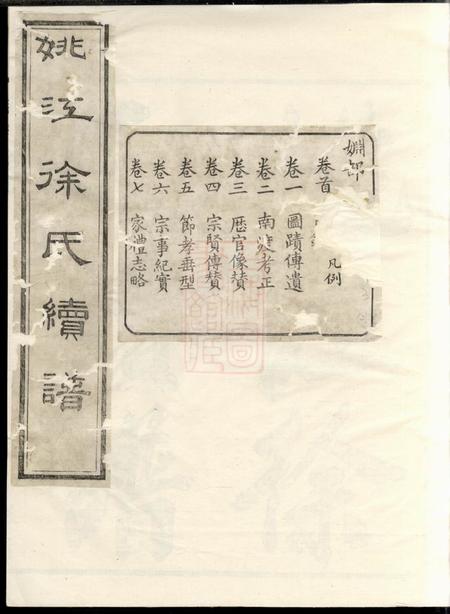 姚江徐氏續譜
卷首
凡例
卷一 圖蹟傳遺
卷二 南渡考正
卷三 歷官像贊
卷四 宗賢傳贊
卷五 節孝垂型
卷六 宗事紀實
卷七 家禮志略